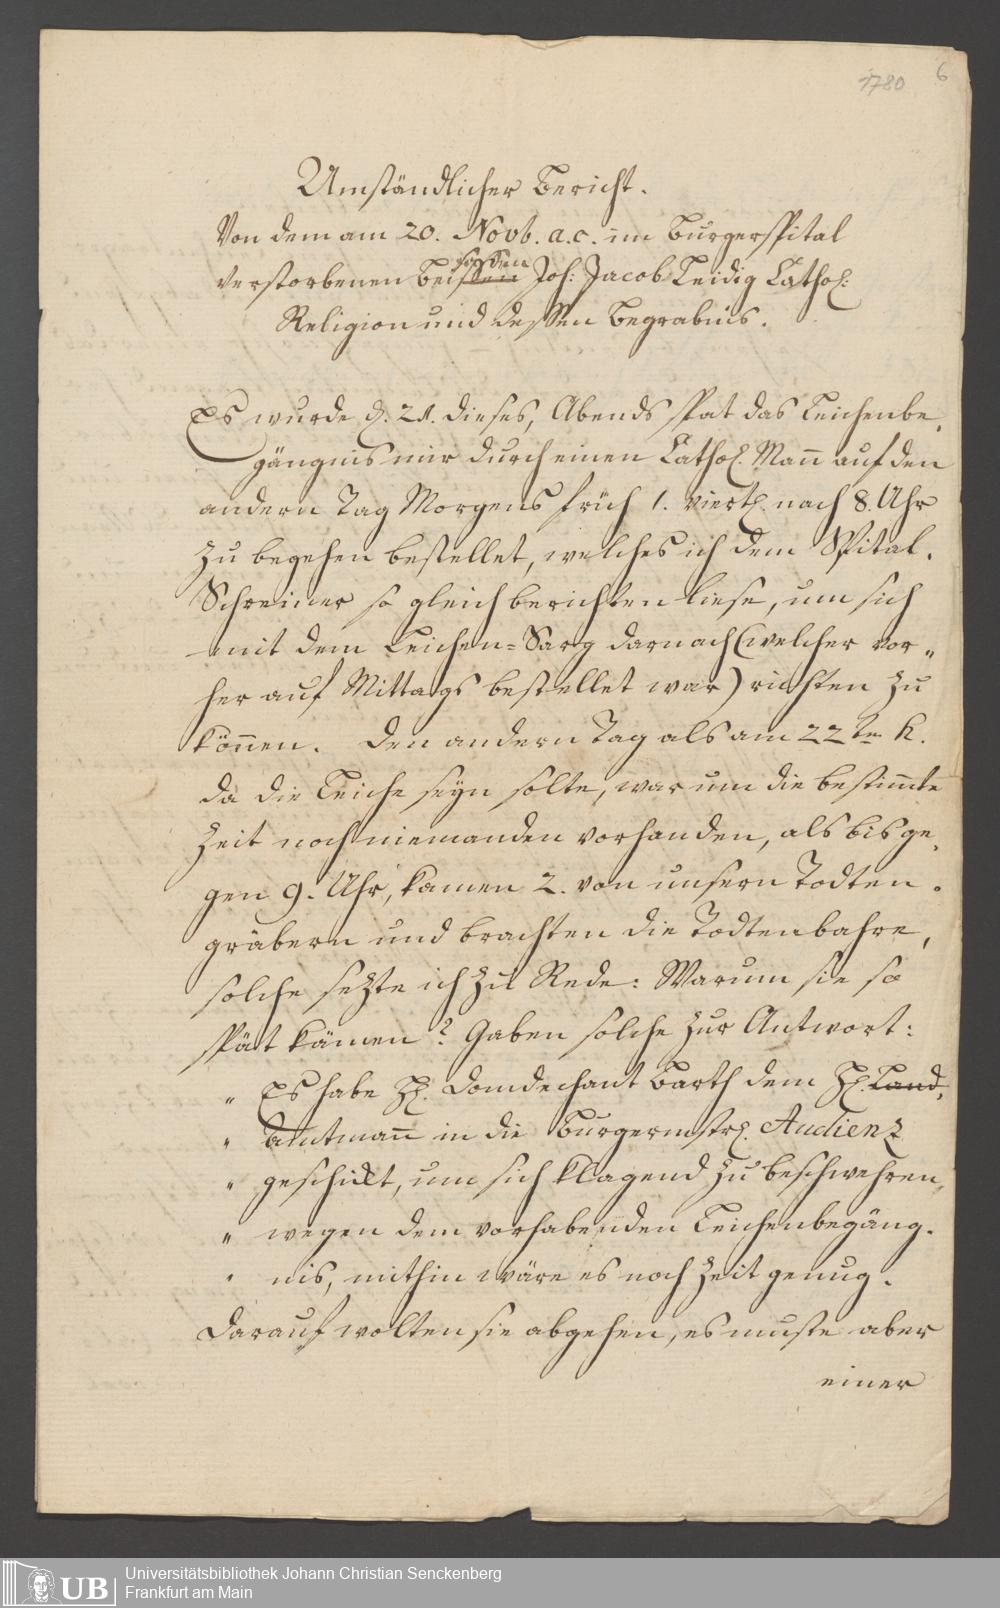 1780 6
Umständlicher Bericht.
Von dem am 20. Novb. a.c. im Burgerspital
verstorbenen Beisassen Joh: Jacob Leidig Cathol:
Religion und dessen Begräbnis.
Es wurde d. 21. dieses, Abends spat das Leichenbe-
gängnis mir durch einen Cathol. Mañ auf den
andern Tag Morgens früh 1. viertl. nach 8. Uhr
zu begehen bestellet, welches ich dem Spital-
Schreiner so gleich berichten liese, um sich
mit dem Leichen=Sarg darnach (welcher vor-
her auf Mittags bestellet war) richten zu
könen. Den andern Tag als am 22ten h.
da die Leiche seyn solte, war um die bestim̃te
Zeit noch niemanden vorhanden, als bis ge-
gen 9. Uhr, kamen 2. von unsern Todten-
gräbern und brachten die Todtenbahre,
solche sezte ich zu Rede: Warum sie so
spät kämen? Gaben solche zur Antwort:
„ Es habe H. Domdechant Barth dem H. Land-
„ Amtmañ in die Burgermstrl. Audienz
„ geschickt, um sich klagend zu beschwehren,
„ wegen dem vorhabenden Leichenbegäng-
„ nis, mithin wäre es noch Zeit genug.
Darauf wolten sie abgehen, es muste aber
einer
UB Universitätsbibliothek Johann Christian Senckenberg
Frankfurt am Main